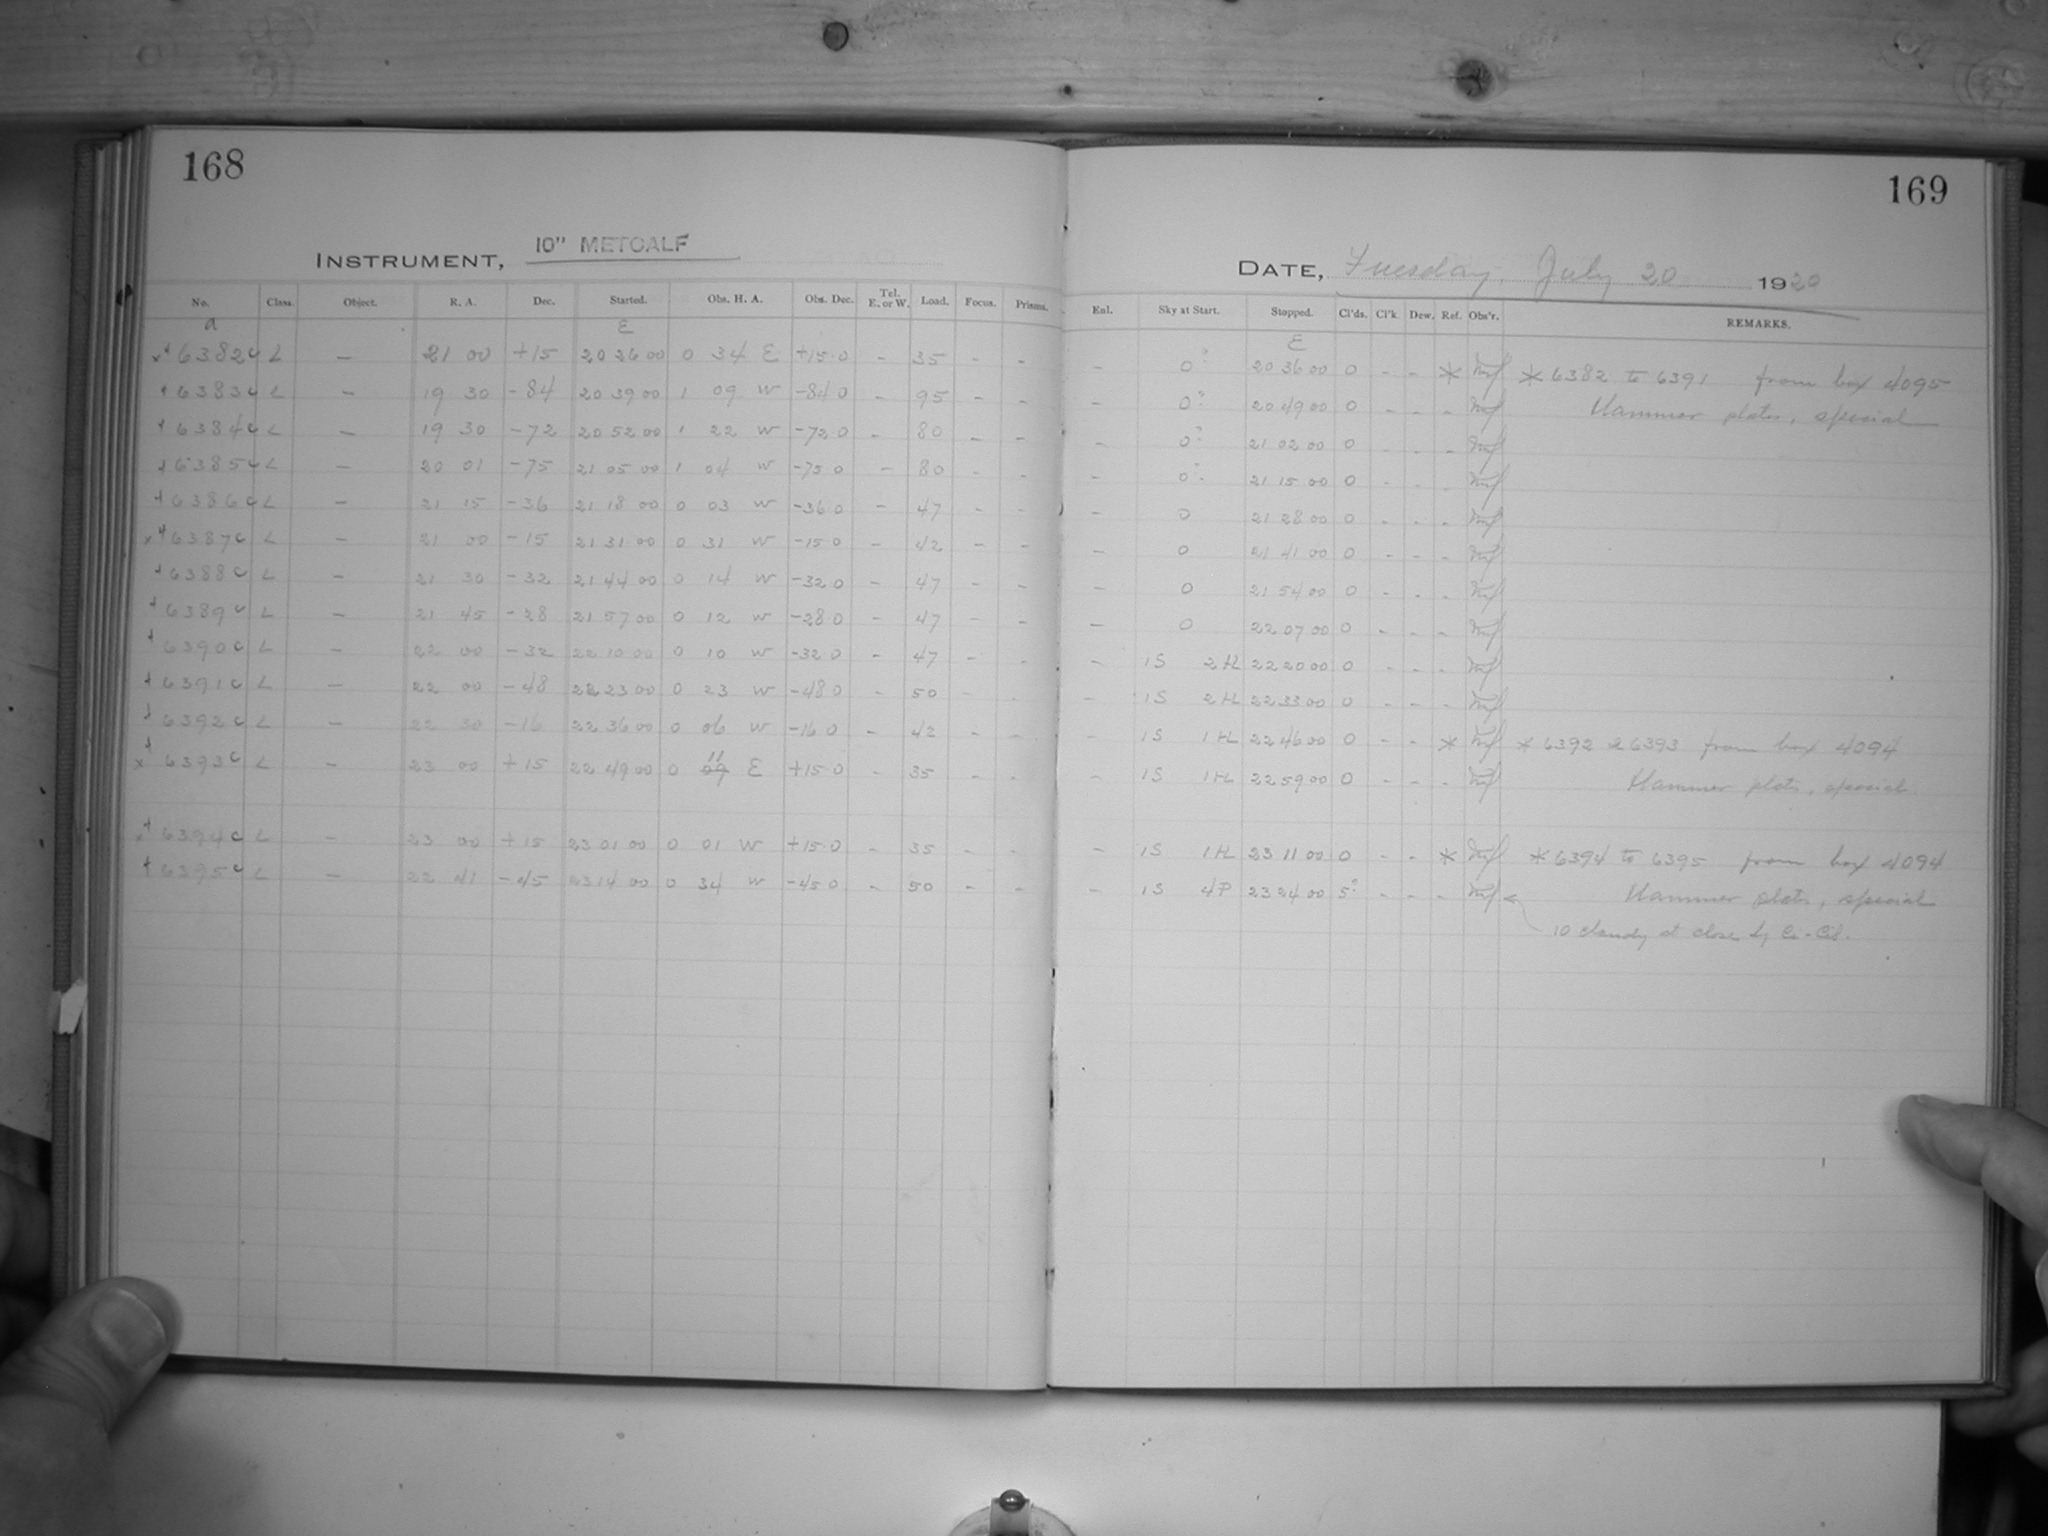 168
INSTRUMENT, 10" METCALF
No. Class. Object. R. A. Dec. Started. Obs. H. A. Obs. Dec. Tel. E. or W. Load. Focus. Prisms.
a E
x+6382c L – 21 00 +15 20 26 00 0 34 E +15.0 – 35 – –
+6383c L – 19 30 -84 20 39 00 1 09 W -84 0 – 95 – –
+6384c L – 19 30 -72 20 52 00 1 22 W -72 0 – 80 – –
+6385c L – 20 01 -75 21 05 00 1 04 W -75 0 – 80 – –
+6386c L – 21 15 -36 21 18 00 0 03 W -36 0 – 47 – –
x+6387c L – 21 00 -15 21 31 00 0 31 W -15 0 – 42 – –
+6388c L – 21 30 -32 21 44 00 0 14 W -32 0 – 47 – –
+6389c L – 21 45 -28 21 57 00 0 12 W -28 0 – 47 – –
+6390c L – 22 00 -32 22 10 00 0 10 W -32 0 – 47 – –
+6391c L – 22 00 -48 22 23 00 0 23 W -48 0 – 50 – –
+6392c L – 22 30 -16 22 36 00 0 06 W -16 0 – 42 – –
x+6393c L – 23 00 +15 22 49 00 0 11 09 E +15.0 – 35 – –
x+6394c L – 23 00 +15 23 01 00 0 01 W +15.0 – 35 – –
+6395c L – 22 41 -45 23 14 00 0 34 W -45 0 – 50 – –
169
DATE, Tuesday, July 20 1920
Enl. Sky at Start. Stopped. Cl'ds. Cl'k. Dew. Ref. Obs'r. REMARKS.
E
– 0? 20 36 00 0 – – * * 6382 to 6391 from box 4095
– 0? 20 49 00 0 – – – Hammer plates, special
– 0? 21 02 00 0 – – –
– 0? 21 15 00 0 – – –
– 0 21 28 00 0 – – –
– 0 21 41 00 0 – – –
– 0 21 54 00 0 – – –
– 0 22 07 00 0 – – –
– 1S 2H 22 20 00 0 – – –
– 1S 2H 22 33 00 0 – – –
– 1S 1H 22 46 00 0 – – * * 6392 & 6393 from box 4094
– 1S 1H 22 59 00 0 – – – Hammer plates, special
– 1S 1H 23 11 00 0 – – * * 6394 to 6395 from box 4094
– 1S 4P 23 24 00 5? – – – Hammer plates, special
10 cloudy at close by